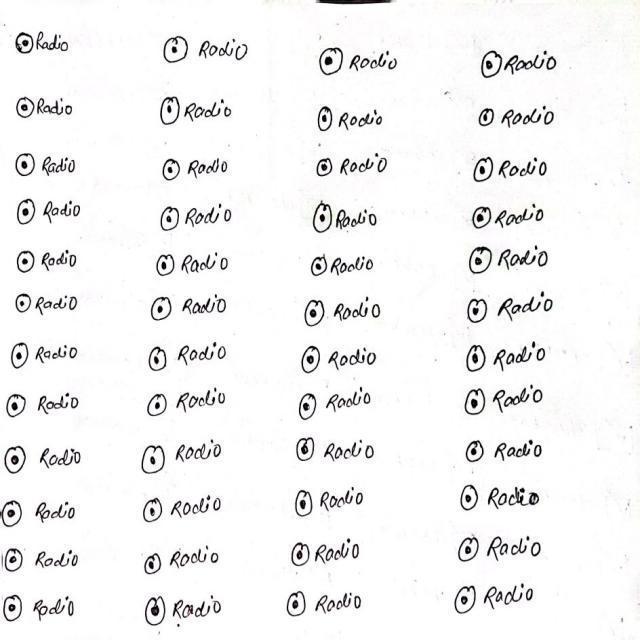 Radio Radio Radio Radio
Radio Radio Radio Radio
Radio Radio Radio Radio
Radio Radio Radio Radio
Radio Radio Radio Radio
Radio Radio Radio Radio
Radio Radio Radio Radio
Radio Radio Radio Radio
Radio Radio Radio Radio
Radio Radio Radio Radio
Radio Radio Radio Radio
Radio Radio Radio Radio